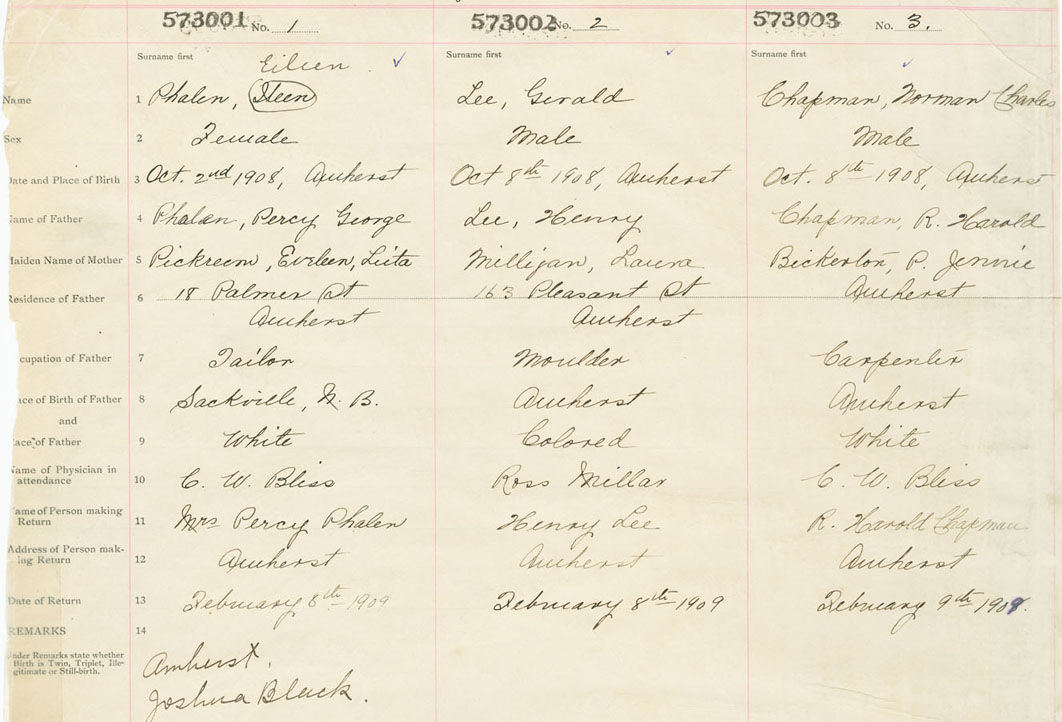 573001 No. 1 573002 No. 2 573003 No. 3.
Surname first Surname first Surname first
Eileen
Name 1 Phalen, Ileen Lee, Gerald Chapman, Norman Charles
Sex 2 Female Male Male
Date and Place of Birth 3 Oct. 2nd 1908, Amherst Oct 8th 1908, Amherst Oct. 8th 1908, Amherst
ame of Father 4 Phalen, Percy George Lee, Henry Chapman, R. Harold
Maiden Name of Mother 5 Pickreem, Eveleen, Lieta Milligan, Laura Bickerton, P. Jennie
Residence of Father 6 18 Palmer St 163 Pleasant St Amherst
Amherst Amherst
cupation of Father 7 Tailor Moulder Carpenter
ace of Birth of Father 8 Sackville, N. B. Amherst Amherst
and
ace of Father 9 White Colored White
Name of Physician in
attendance 10 C. W. Bliss Ross Millar C. W. Bliss
ame of Person making
Return 11 Mrs Percy Phalen Henry Lee R. Harold Chapman
Address of Person mak-
ing Return 12 Amherst Amherst Amherst
Date of Return 13 February 8th 1909 February 8th 1909 February 9th 1909.
REMARKS 14
Under Remarks state whether
Birth is Twin, Triplet, Ille-
gitimate or Still-birth.
Amherst,
Joshua Black.